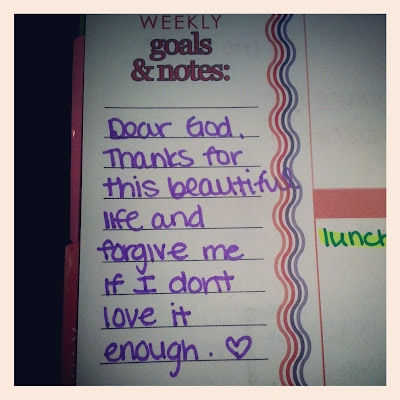 WEEKLY
goals
& notes:
Dear God,
Thanks for
this beautiful
life and
forgive me
if I dont
love it
enough. ♡
lunch